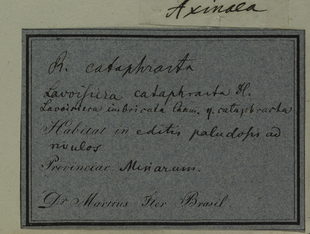 Axinaea
R. cataphracta
Lavoisiera cataphracta
Lavoisiera imbricata Cham. cataphracta
Habitat in editis paludosis ad
rivulos
Provinciae Minarum.
Dr Martius Iter Brasil.